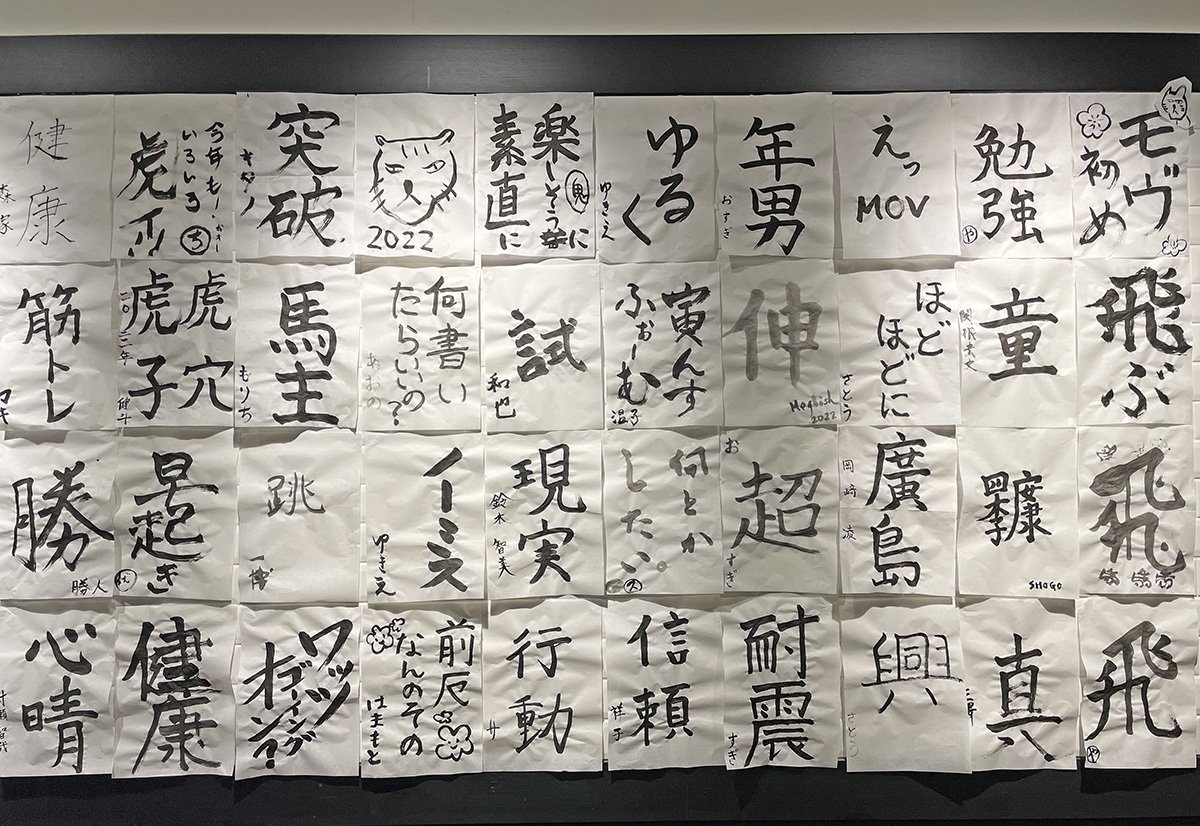 健康
森家
今年も!
いろいろ
突破
2022
楽しそうに
素直に
ゆるく
ゆきえ
年男
おすぎ
えっ
MOV
勉強
や
モヴ
初め
筋トレ
マキ
虎穴
虎子
二〇二二年
健斗
馬主
もりち
何書い
たらいいの?
あおの
試
和也
寅んす
ふぉーむ
温子
伸
2022
ほど
ほどに
さとう
童
飛ぶ
勝
勝人
早起き
跳
イーミえ
ゆきえ
現実
鈴木智美
何とか
したい。
久
超
おすぎ
廣島
岡崎
SHOGO
飛
飛
心晴
健康
ワッツ
ゴーイング
オン?
前厄
なんのその
はまもと
行動
信頼
祥子
耐震
すぎ
興
さとう
真
飛
や